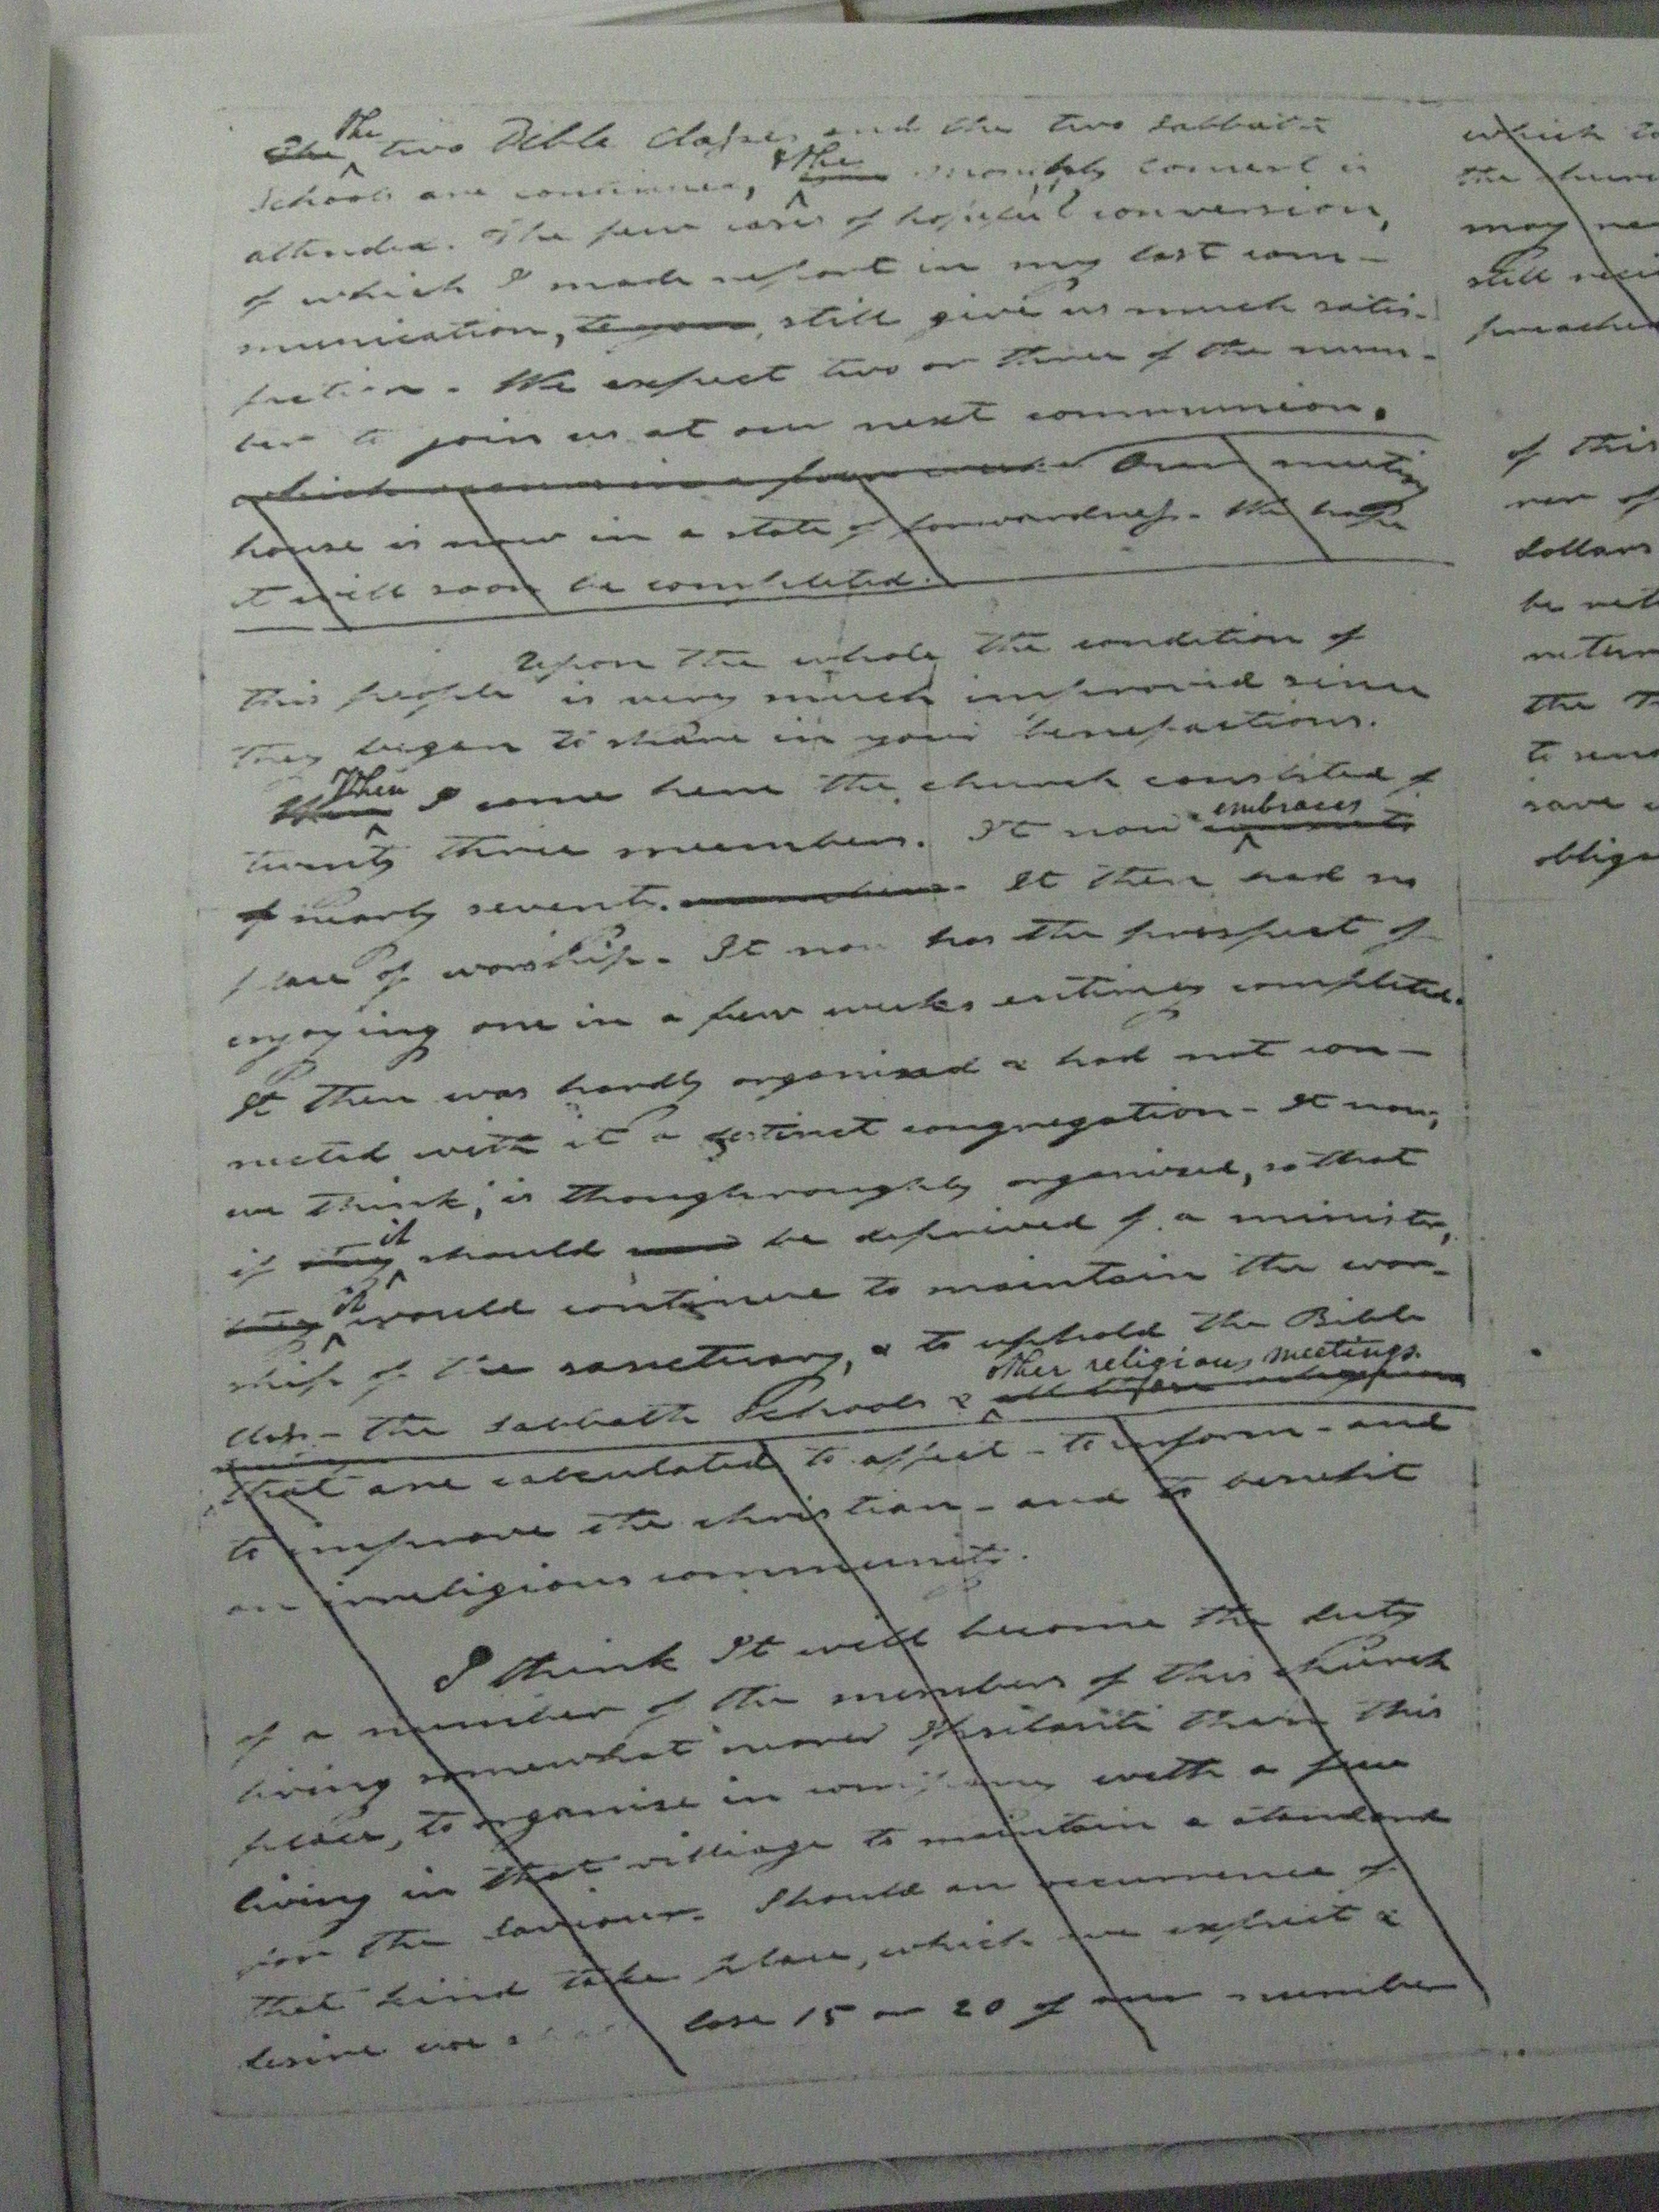 ~~The~~ The two Bible Classes and the two Sabbath
Schools are continued, & the ~~~~ monthly concert is
attended. The few cases of hopeful conversion,
of which I made report in my last com-
munication, ~~to you~~, still give us much satis-
faction. We expect two or three of the num-
ber to join us at our next communion.
~~which occurs in a few weeks~~ Our meeting
house is now in a state of forwardness. We hope
it will soon be completed.
Upon the whole the condition of
this people is very much improved since
they began to share in your benefactions.
~~When~~ When I came here the church consisted of
twenty three members. It now embraces ~~consists~~
~~of~~ nearly seventy. ~~members~~. It then had no
place of worship. It now has the prospect of
enjoying one in a few weeks entirely completed.
It then was hardly organised & had not con-
nected with it a distinct congregation. It now,
we think, is thoughroughly organised, so that
if ~~they~~ it should ~~~~ be deprived of a minister,
~~they~~ it would continue to maintain the wor-
ship of the sanctuary, & to uphold the Bible
class - the Sabbath Schools & other religious meetings.
that are calculated to affect - to inform - and
to improve the christian - and to benefit
an irreligious community.
I think It will become the duty
of a number of the members of this church
living somewhat nearer than this
place, to organise in company with a few
living in that villiage to maintain a standard
for the Saviour. Should an occurrence of
that kind take place, which we expect &
desire we shall lose 15 or 20 of our number
which
the
may
still
preache
of this
ner of
dollars
be
retur
the
to
save
oblige